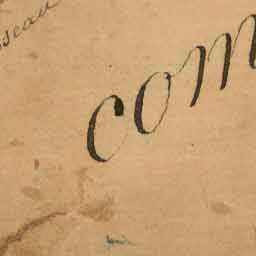 sseau
com